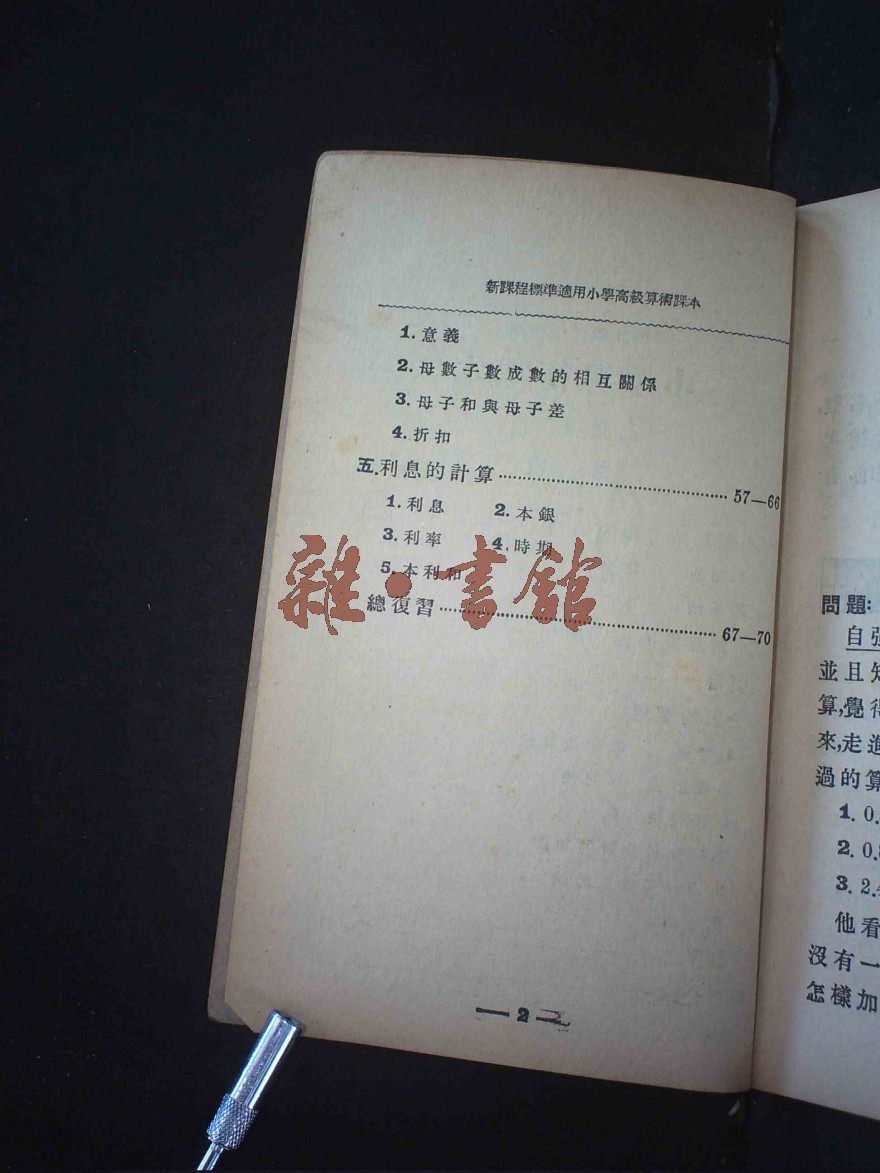 新課程標準適用小學高級算術課本
1. 意義
2. 母數子數成數的相互關係
3. 母子和與母子差
4. 折扣
五.利息的計算……57—66
1. 利息 2. 本銀
3. 利率 4. 時期
5. 本利和
總復習……67—70
— 2 —
雜·書館
問題:
自强
並且知
算,覺得
來,走進
過的算
1. 0.
2. 0.
3. 2.
他看
沒有一
怎樣加